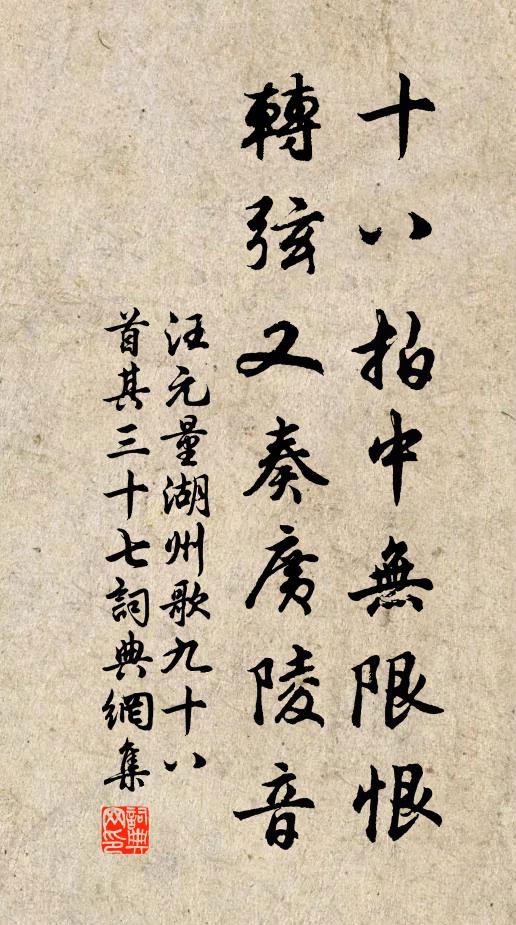 十八拍中無限恨
轉弦又奏廣陵音
汪元量湖州歌九十八
首其三十七詞典網集
詞典
网印